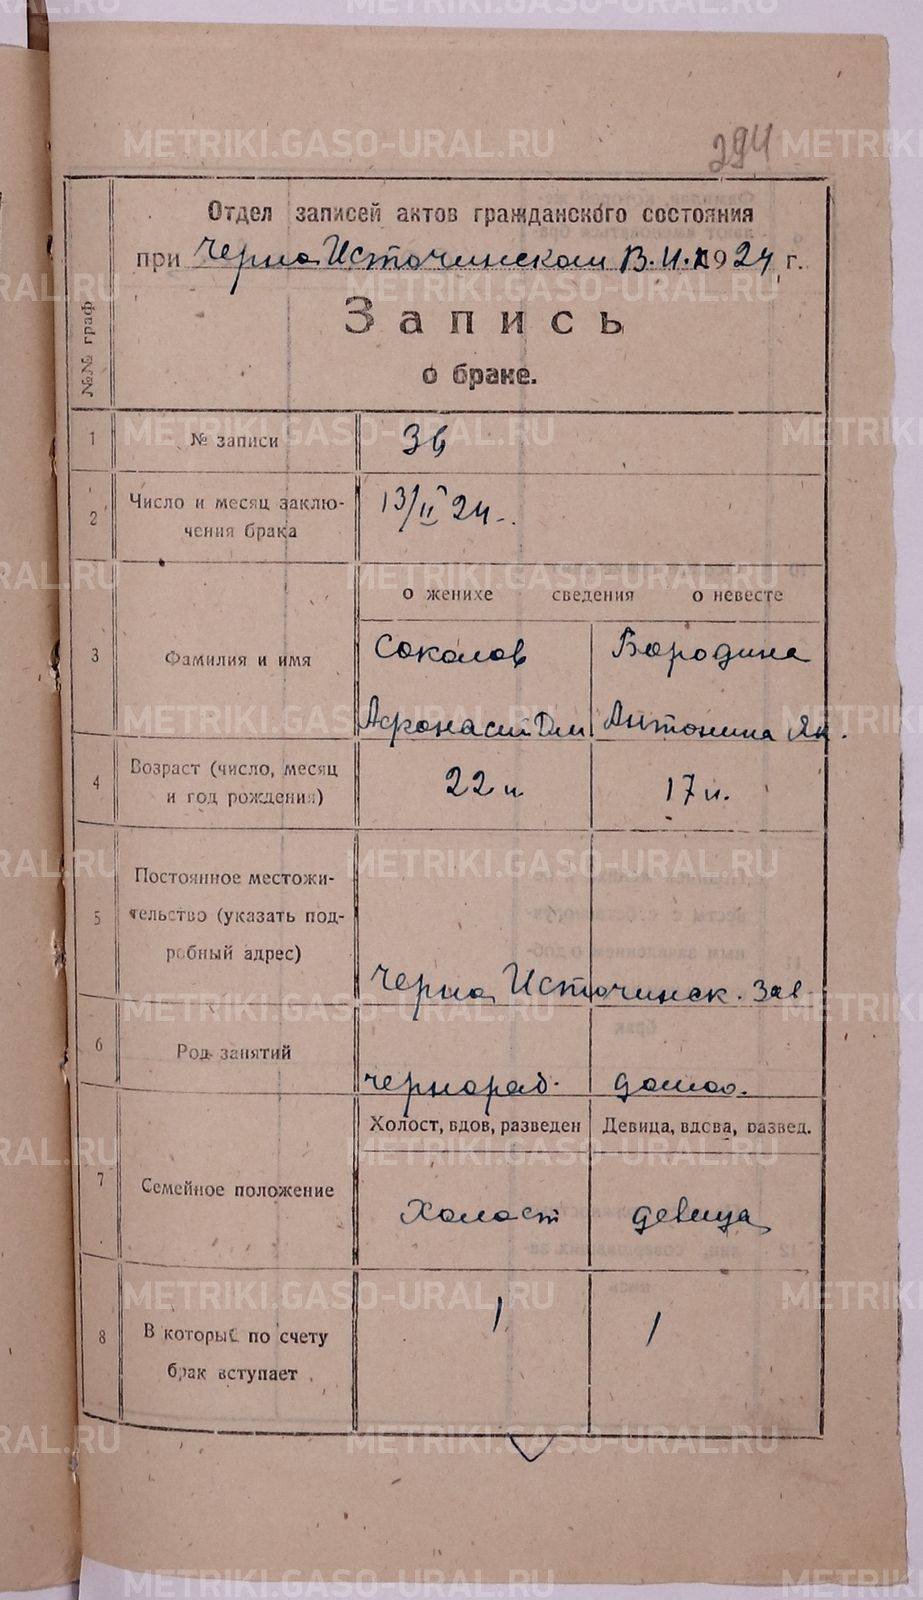 294
Отдел записей актов гражданского состояния
при Черно Источинском В.И.К 1924 г.
№№ граф
Запись
о браке.
1 № записи 36
2 Число и месяц заклю-
чения брака 13/II 24
о женихе сведения о невесте
3 Фамилия и имя Соколов Бородина
Афонасий Дм Антонина Як.
4 Возраст (число, месяц
и год рождения) 22 л 17 л.
5 Постоянное местожи-
тельство (указать под-
робный адрес)
Черно Источинск. Зав
6 Род занятий чернораб. домоо.
Холост, вдов, разведен Девица, вдова, развед.
7 Семейное положение Холост девица
8 В который по счету
брак вступает 1 1
METRIKI.GASO-URAL.RU